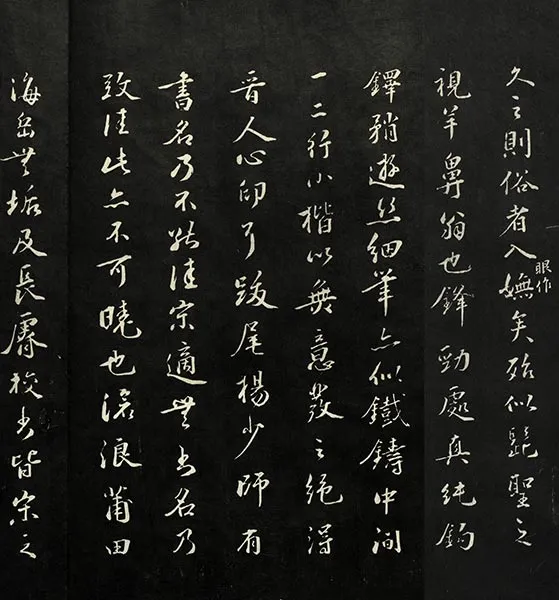 久之則俗者入嫵矣殆似髭聖之
眼作
視羊鼻翁也鋒勁處真純鉤
鐸矟遊絲細筆亦似鐵鑄中間
一二行小楷以無意發之絕得
晉人心印了跋尾楊少師有
書名乃不能佳宗適無書名乃
致佳此亦不可曉也滄浪莆田
海岳無垢及長睿校書皆宗之